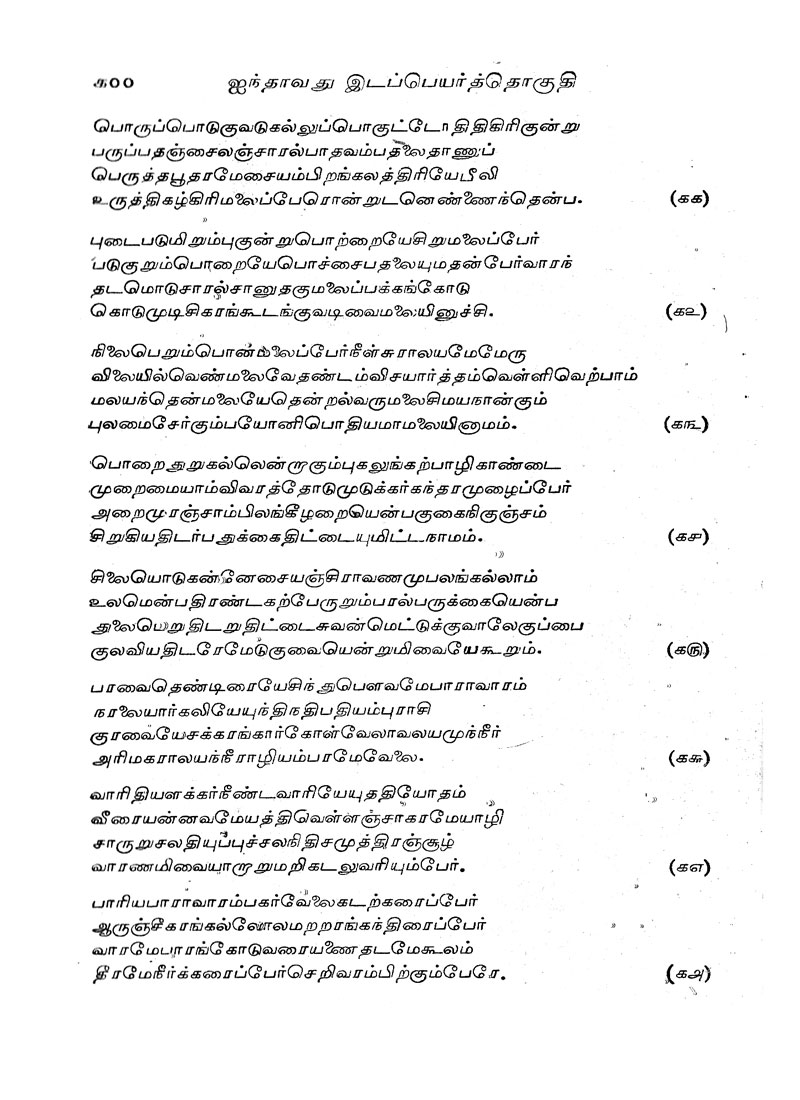 ௧00 ஐந்தாவது இடப்பெயர்த்தொகுதி
பொருப்பொடுகுவடுகல்லுப்பொகுட்டோதிதிகிரிகுன்று
பருப்பதஞ்சைலஞ்சாரல்பாதவம்பதலைதாணுப்
பெருத்தபூதரமேசையம்பிறங்கலத்திரியேபீலி
உருத்திகழ்கிரிமலைப்பேரொன்றுடனெண்ணைந்தென்ப. (௧௧)
புடைபடுமிறும்புகுன்றுபொற்றையேசிறுமலைப்பேர்
படுகுறும்பொறையேபொச்சைபதலையுமதன்பேர்வாரந்
தடமொடுசாரல்சானுதகுமலைப்பக்கங்கோடு
கொடுமுடிசிகரங்கூடங்குவடிவைமலையினுச்சி. (௧௨)
நிலைபெறும்பொன்மலைப்பேர்நீள்சுராலயமேமேரு
விலையில்வெண்மலைவேதண்டம்விசயார்த்தம்வெள்ளிவெற்பாம்
மலயந்தென்மலையேதென்றல்வருமலைசிமயநான்கும்
புலமைசேர்கும்பயோனிபொதியமாமலையினாமம். (௧௩)
பொறைஅறுகல்லென்றாகும்புகலுங்கற்பாழிகாண்டை
முறைமையாம்விவரத்தோடுமுடுக்கர்கந்தரமுழைப்பேர்
அறைமுரஞ்சாம்பிலங்கீழறையென்பகுகைநிகுஞ்சம்
சிறுகியதிடர்பதுக்கைதிட்டையுமிட்டநாமம். (௧௪)
சிலையொடுகன்னேசையஞ்சிராவணமுபலங்கல்லாம்
உலமென்பதிரண்டகற்பேருறும்பரல்பருக்கையென்ப
அலைபெறுதிடறுதிட்டைசுவன்மெட்டுக்குவாலேகுப்பை
குலவியதிடரேமேடுகுவையென்றுமிவையேகூறும். (௧௫)
பரவைதெண்டிரையேசிந்துபௌவமேபாராவாரம்
நரலையார்கலியேயுந்திநதிபதியம்புராசி
குரவையேசக்கரங்கார்கோள்வேலாவலயமுந்நீர்
அரிமகராலயந்நீராழியம்பரமேவேலை. (௧௬)
வாரிதியளக்கர்நீண்டவாரியேயுததியோதம்
வீரையன்னவமேயத்திவெள்ளஞ்சாகரமேயாழி
சாருறுசலதியுப்புச்சலநிதிசமுத்திரஞ்சூழ்
வாரணமிவையாறாறுமறிகடலுவரியும்பேர். (௧௭)
பாரியபாராவாரம்பகர்வேலைகடற்கரைப்பேர்
ஆருஞ்சீகரங்கல்லோலமறறரங்கந்திரைப்பேர்
வாரமேபாரங்கோடுவரையணைதடமேகூலம்
தீரமேநீர்க்கரைப்பேர்செறிவரம்பிற்கும்பேரே. (௧௮)